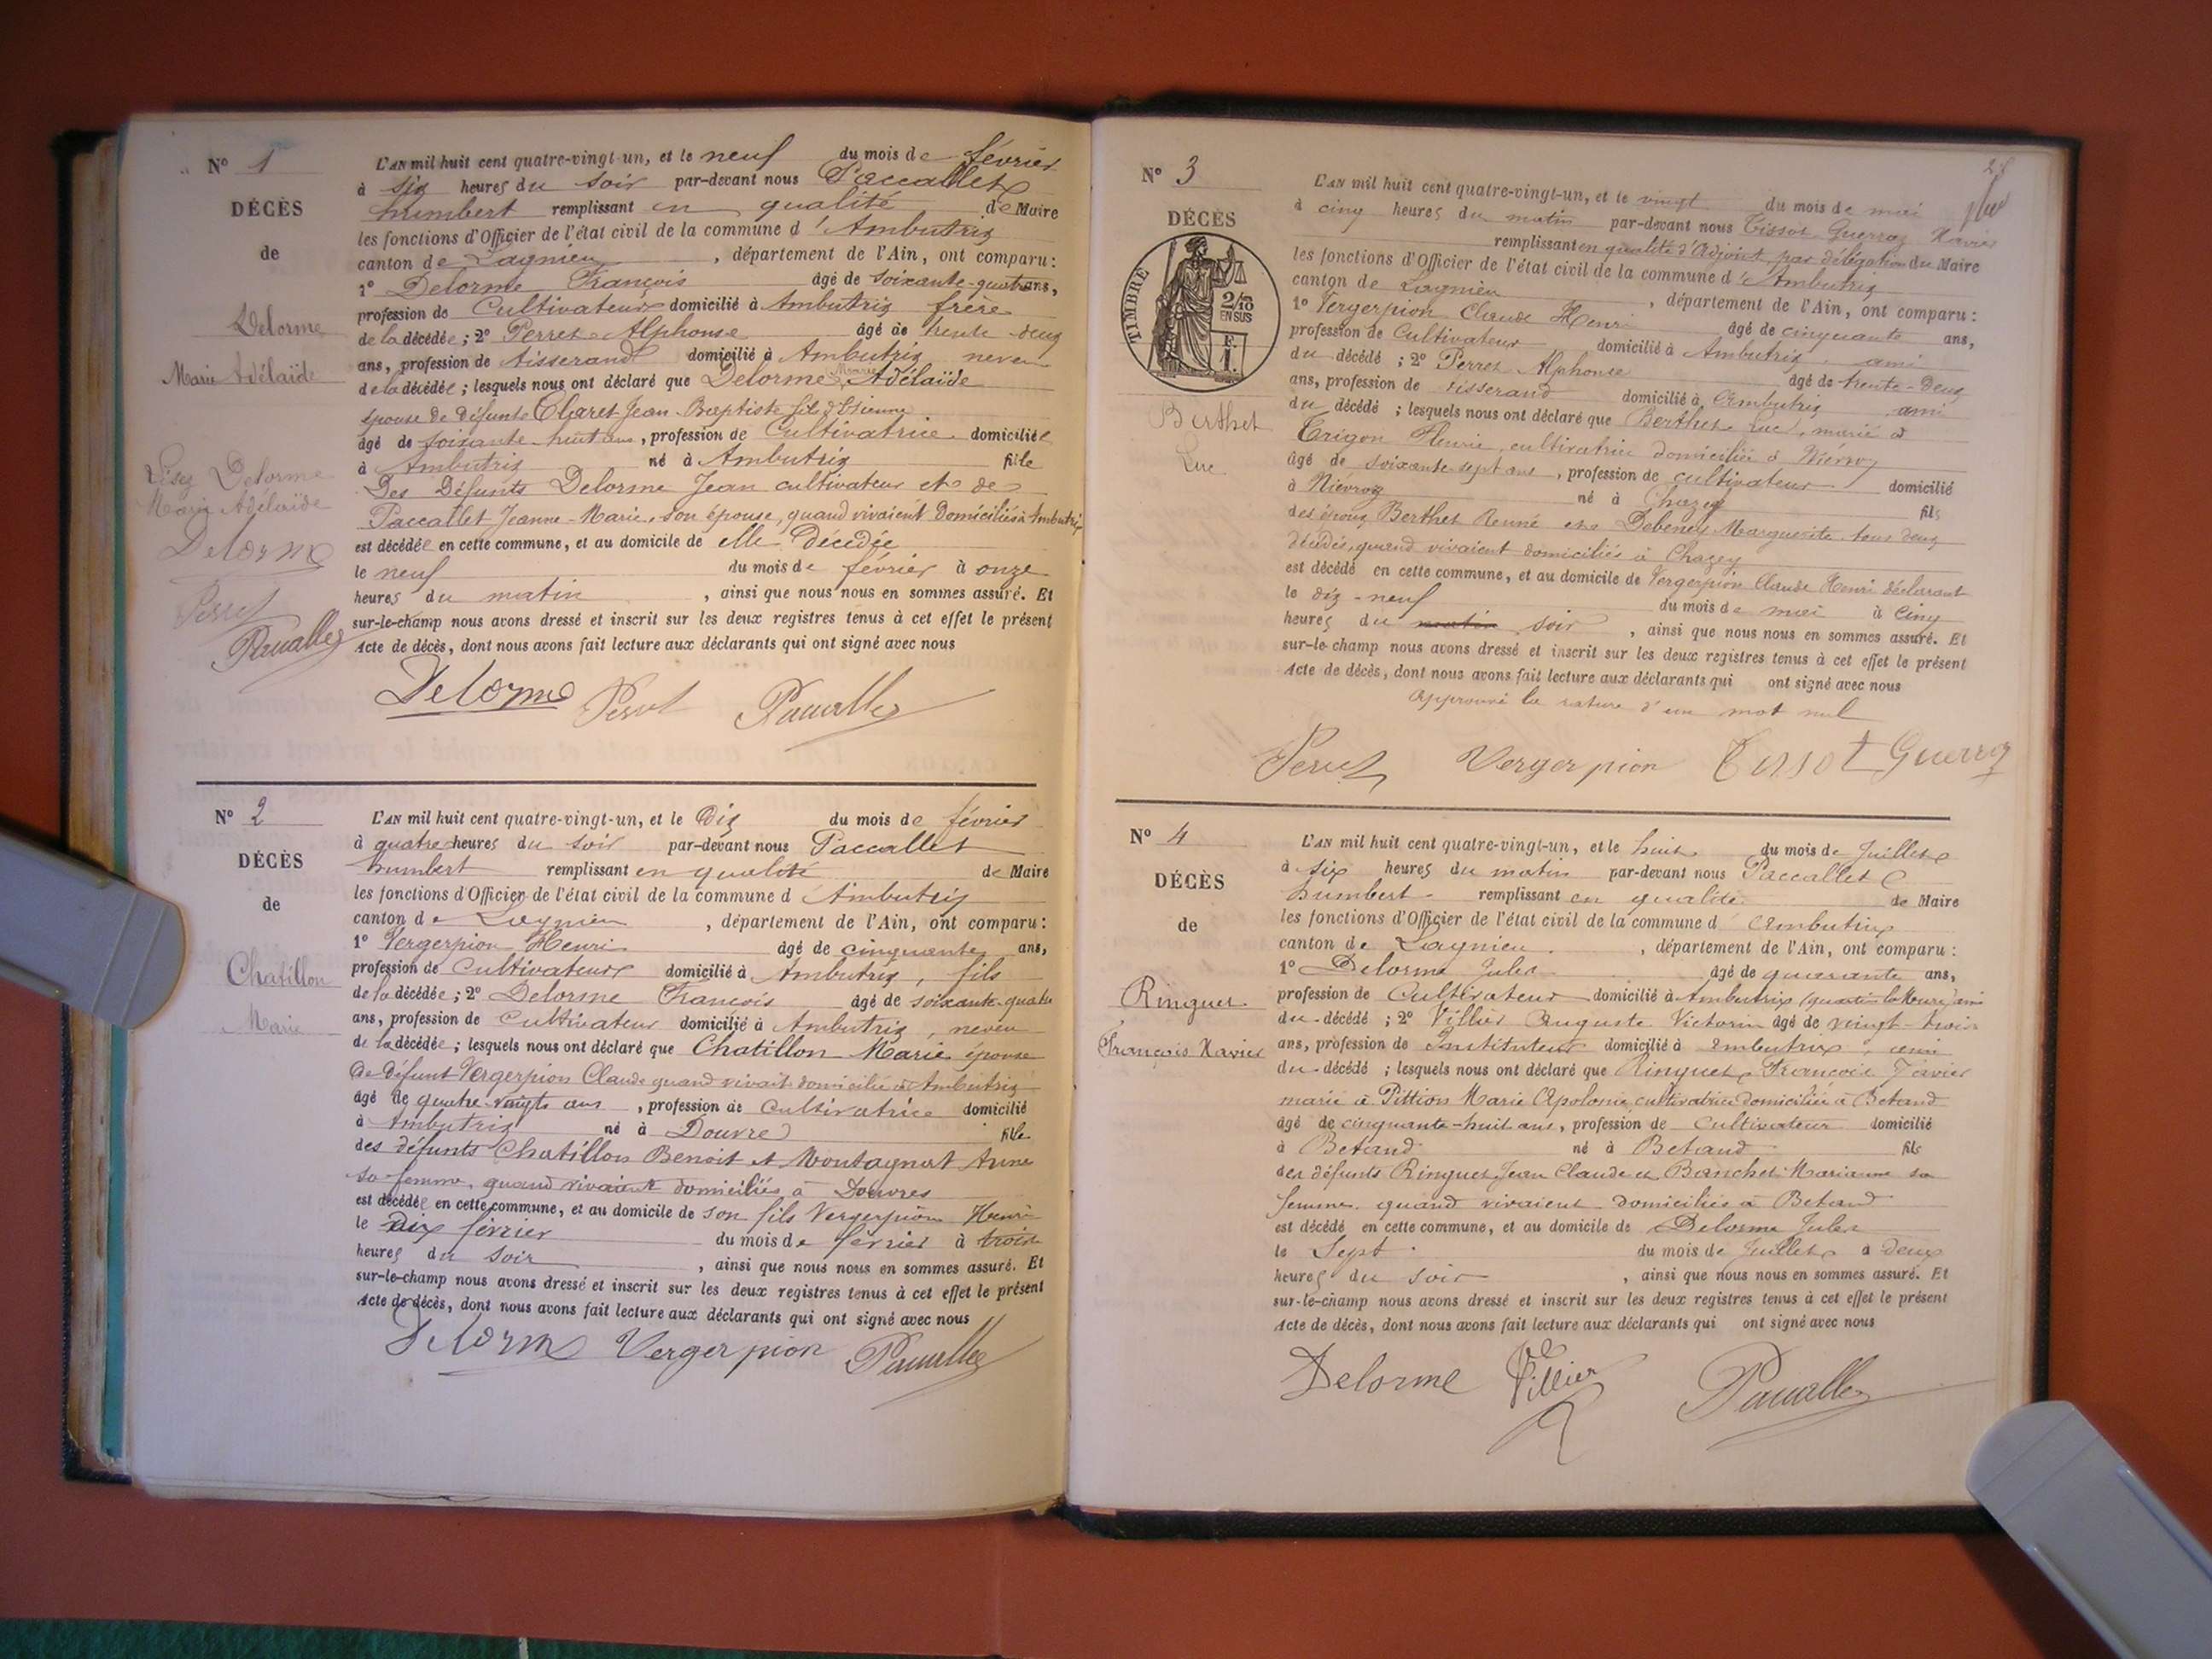 N° 1
DÉCÈS
de
Delorme
Marie Adélaïde
Lisez Delorme
Marie Adélaïde
Delorme
Perret
Paccallet
L'AN mil huit cent quatre-vingt-un, et le neuf du mois de février
à six heures du soir par-devant nous Paccallet
humbert remplissant en qualité de Maire
les fonctions d'Officier de l'état civil de la commune d'Ambutrix
canton de Lagnieu, département de l'Ain, ont comparu:
1° Delorme François âgé de soixante-quatre ans,
profession de Cultivateur domicilié à Ambutrix frère
de la décédée; 2° Perret Alphonse âgé de trente-deux
ans, profession de tisserand domicilié à Ambutrix neveu
de la décédée; lesquels nous ont déclaré que Delorme Marie Adélaïde
épouse de défunt Claret Jean-Baptiste fils d'Etienne
âgé de soixante-huit ans, profession de Cultivatrice domiciliée
à Ambutrix né à Ambutrix fille
Des Défunts Delorme Jean cultivateur et de
Paccallet Jeanne-Marie, son épouse, quand vivaient Domiciliés à Ambutrix
est décédée en cette commune, et au domicile de elle Décédée
le neuf du mois de février à onze
heures du matin, ainsi que nous nous en sommes assuré. Et
sur-le-champ nous avons dressé et inscrit sur les deux registres tenus à cet effet le présent
Acte de décès, dont nous avons fait lecture aux déclarants qui ont signé avec nous
Delorme Perret Paccallet
N° 2
DÉCÈS
de
Chatillon
Marie
L'AN mil huit cent quatre-vingt-un, et le Dix du mois de février
à quatre heures du soir par-devant nous Paccallet
humbert remplissant en qualité de Maire
les fonctions d'Officier de l'état civil de la commune d Ambutrix
canton de Lagnieu, département de l'Ain, ont comparu:
1° Vergerpion Henri âgé de cinquante ans,
profession de Cultivateur domicilié à Ambutrix, fils
de la décédée; 2° Delorme François âgé de soixante-quatre
ans, profession de Cultivateur domicilié à Ambutrix, neveu
de la décédée; lesquels nous ont déclaré que Chatillon Marie épouse
de défunt Vergerpion Claude quand vivait domicilié à Ambutrix
âgé de quatre-vingts ans, profession de cultivatrice domicilié
à Ambutrix né à Douvre fille
des défunts Chatillon Benoit et Montagnat Anne
sa femme, quand vivaient domiciliés à Douvres
est décédée en cette commune, et au domicile de son fils Vergerpion Henri
le dix février du mois de février à trois
heures du soir, ainsi que nous nous en sommes assuré. Et
sur-le-champ nous avons dressé et inscrit sur les deux registres tenus à cet effet le présent
Acte de décès, dont nous avons fait lecture aux déclarants qui ont signé avec nous
Delorme Vergerpion Paccallet
28
N° 3
DÉCÈS
TIMBRE
2/10
EN SUS
F.
1.
Berthet
Luc
L'AN mil huit cent quatre-vingt-un, et le vingt du mois de mai
à cinq heures du matin par-devant nous Tissot Guerraz Xavier
remplissant en qualité d'adjoint, par délégation du Maire
les fonctions d'Officier de l'état civil de la commune d'Ambutrix
canton de Lagnieu, département de l'Ain, ont comparu:
1° Vergerpion Claude Henri âgé de cinquante ans,
profession de Cultivateur domicilié à Ambutrix ami
du décédé; 2° Perret Alphonse âgé de trente-deux
ans, profession de tisserand domicilié à Ambutrix ami
du décédé; lesquels nous ont déclaré que Berthet Luc, marié à
Trigon Fleurie, cultivatrice domiciliée à Niévroz
âgé de soixante sept ans, profession de cultivateur domicilié
à Niévroz né à Chazey fils
des époux Berthet Renné et Debeney Marguerite tous deux
décédés, quand vivaient domiciliés à Chazey
est décédé en cette commune, et au domicile de Vergerpion Claude Henri déclarant
le dix-neuf du mois de mai à cinq
heures du matin soir, ainsi que nous nous en sommes assuré. Et
sur-le-champ nous avons dressé et inscrit sur les deux registres tenus à cet effet le présent
Acte de décès, dont nous avons fait lecture aux déclarants qui ont signé avec nous
Approuvé la rature d'un mot nul
Perret Vergerpion Tissot Guerraz
N° 4
DÉCÈS
de
Ringuet
François Xavier
L'AN mil huit cent quatre-vingt-un, et le huit du mois de Juillet
à six heures du matin par-devant nous Paccallet
humbert remplissant en qualité de Maire
les fonctions d'Officier de l'état civil de la commune d Ambutrix
canton de Lagnieu, département de l'Ain, ont comparu:
1° Delorme Jules âgé de quarante ans,
profession de Cultivateur domicilié à Ambutrix ami
du décédé; 2° Villier Auguste Victorin âgé de vingt-trois
ans, profession de Instituteur domicilié à Ambutrix, ami
du décédé; lesquels nous ont déclaré que Ringuet François Xavier
marié à Pittion Marie Apolonie, cultivatrice domiciliée à Betand
âgé de cinquante-huit ans, profession de Cultivateur domicilié
à Betand né à Betand fils
des défunts Ringuet Jean Claude et Banchet Marianne sa
femme, quand vivaient domiciliés à Betand
est décédé en cette commune, et au domicile de Delorme Jules
le Sept du mois de Juillet à deux
heures du soir, ainsi que nous nous en sommes assuré. Et
sur-le-champ nous avons dressé et inscrit sur les deux registres tenus à cet effet le présent
Acte de décès, dont nous avons fait lecture aux déclarants qui ont signé avec nous
Delorme Villier Paccallet